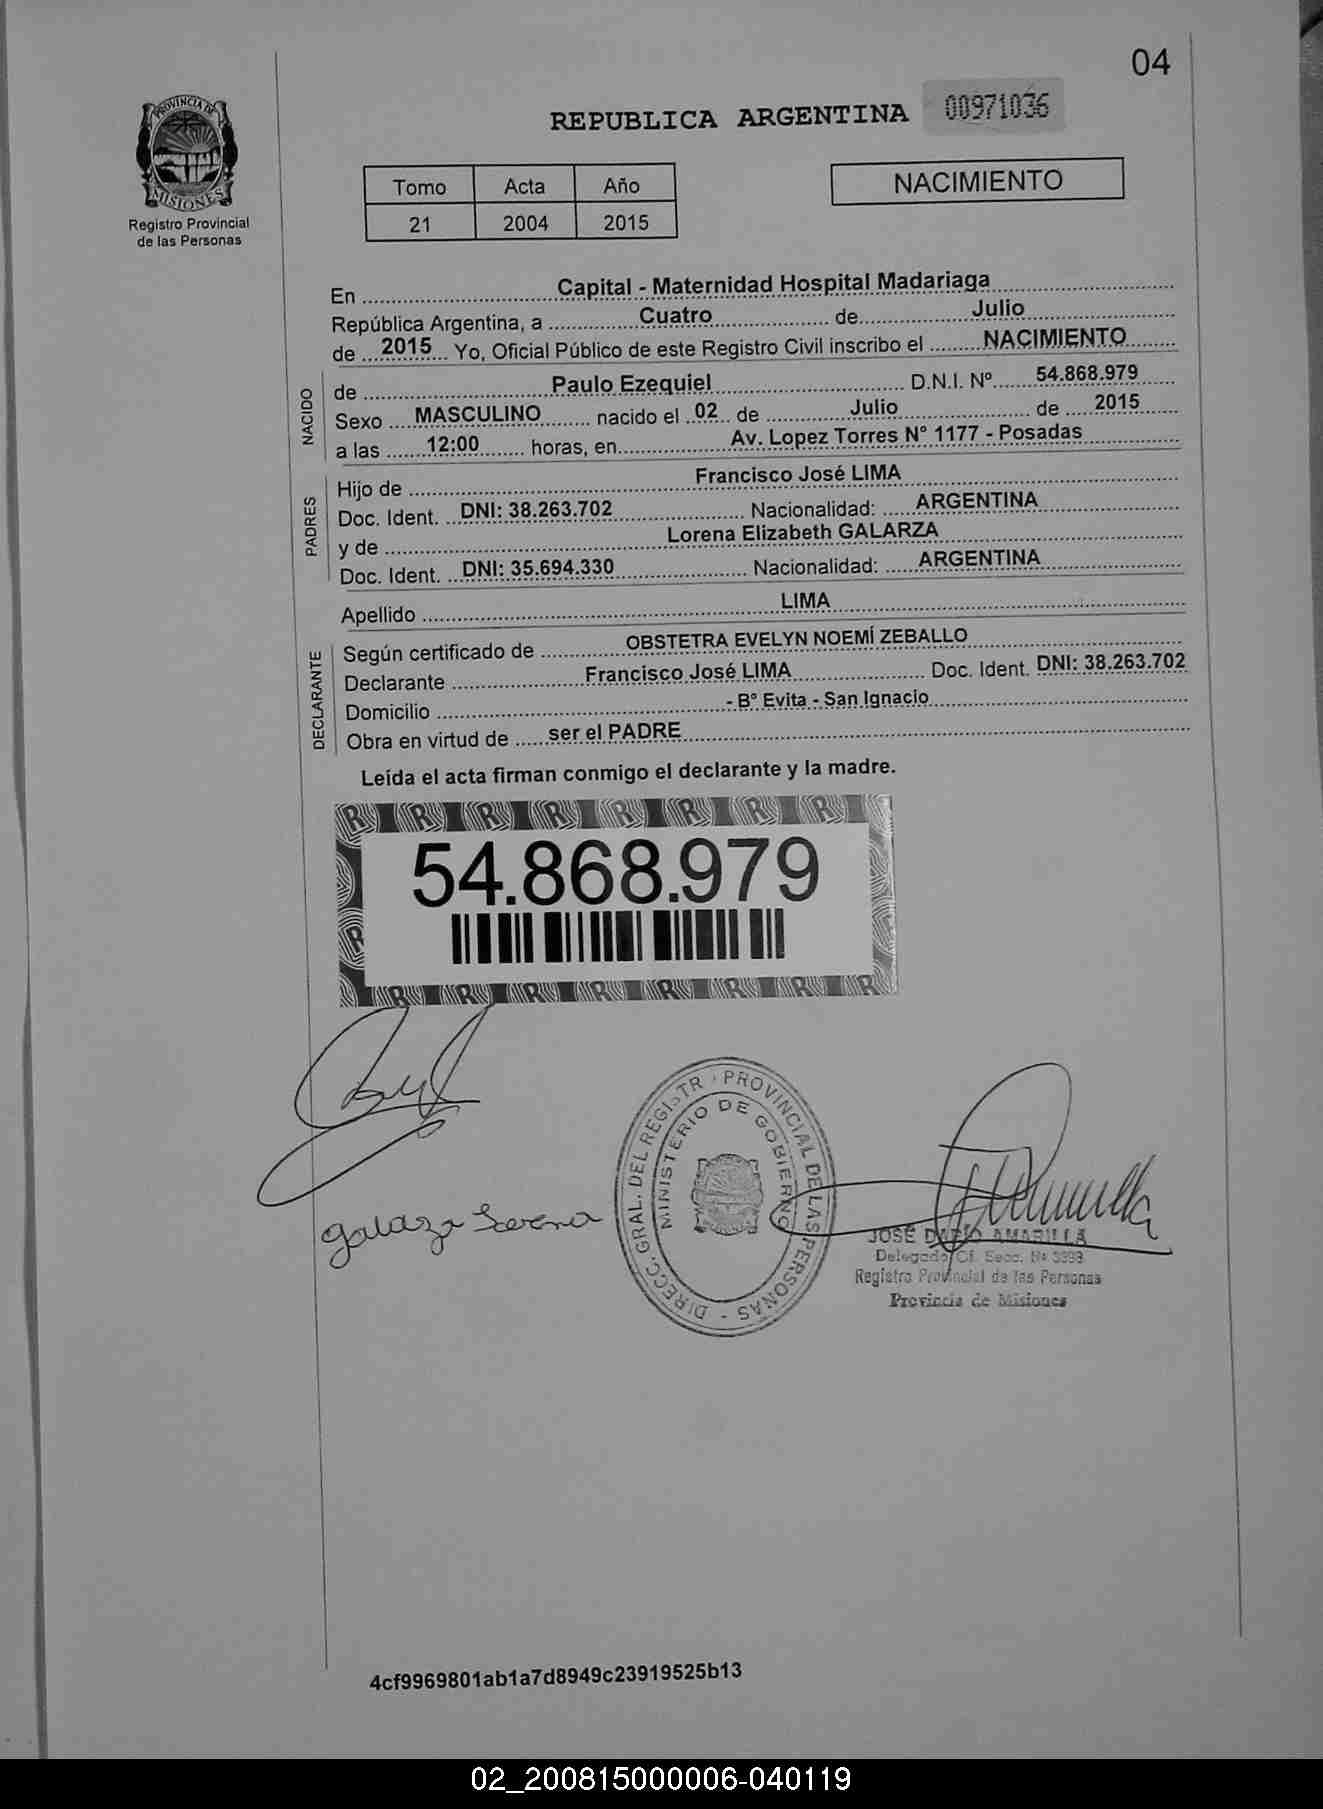 04
PROVINCIA DE
MISIONES
Registro Provincial
de las Personas
REPUBLICA ARGENTINA 00971036
Tomo Acta Año
21 2004 2015
NACIMIENTO
En Capital - Maternidad Hospital Madariaga
República Argentina, a Cuatro de Julio
de 2015 Yo, Oficial Público de este Registro Civil inscribo el NACIMIENTO
NACIDO
de Paulo Ezequiel D.N.I. Nº 54.868.979
Sexo MASCULINO nacido el 02 de Julio de 2015
a las 12:00 horas, en Av. Lopez Torres N° 1177 - Posadas
PADRES
Hijo de Francisco José LIMA
Doc. Ident. DNI: 38.263.702 Nacionalidad: ARGENTINA
y de Lorena Elizabeth GALARZA
Doc. Ident. DNI: 35.694.330 Nacionalidad: ARGENTINA
Apellido LIMA
DECLARANTE
Según certificado de OBSTETRA EVELYN NOEMÍ ZEBALLO
Declarante Francisco José LIMA Doc. Ident. DNI: 38.263.702
Domicilio - B° Evita - San Ignacio
Obra en virtud de ser el PADRE
Leída el acta firman conmigo el declarante y la madre.
54.868.979
DIRECC. GRAL. DEL REGISTR PROVINCIAL DE LAS PERSONAS -
MINISTERIO DE GOBIERNO
JOSÉ DARÍO AMARILLA
Delegado Cf. Secc.
Registro Provincial de las Personas
Provincia de Misiones
4cf9969801ab1a7d8949c23919525b13
02_200815000006-040119